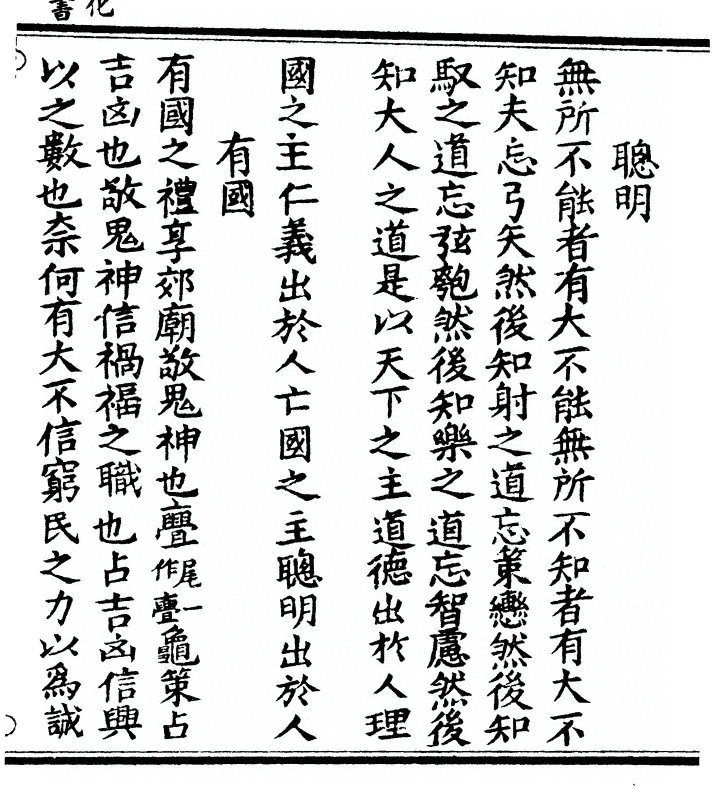 化書
聰明
無所不能者有大不能無所不知者有大不
知夫忘弓矢然後知射之道忘策轡然後知
馭之道忘弦匏然後知樂之道忘智慮然後
知大人之道是以天下之主道德出於人理
國之主仁義出於人亡國之主聰明出於人
有國
有國之禮享郊廟敬鬼神也亹尾一作亹龜策占
吉凶也敬鬼神信禍福之職也占吉凶信興
以之數也奈何有大不信窮民之力以爲誠